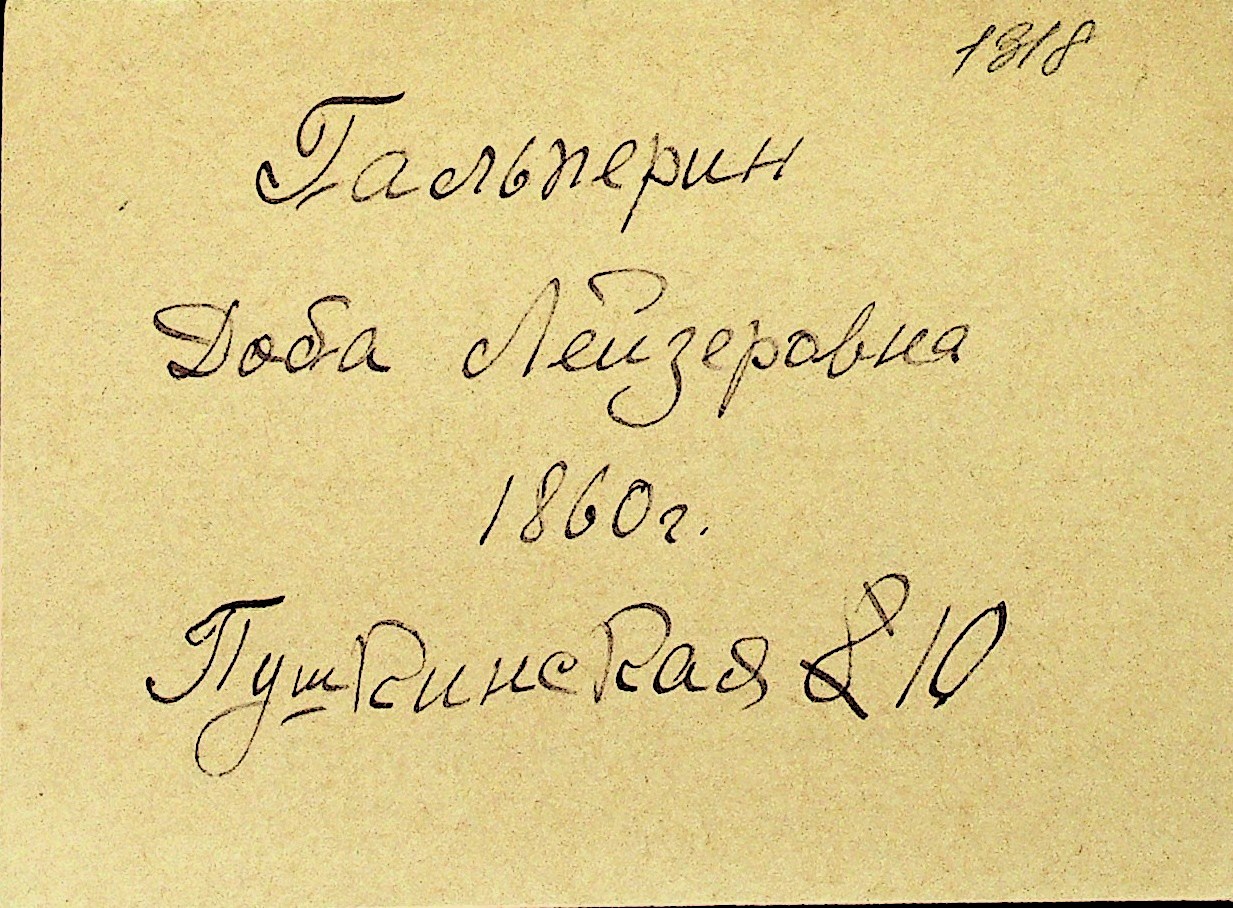 1318
Гальперин
Доба Лейзеровна
1860г.
Пушкинская 8 10